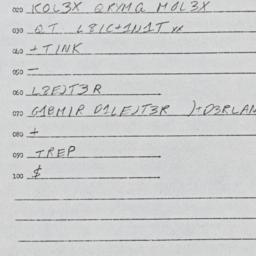 020 KOL3X QRYMG MOL3X
030 QT L81C+1N1T xx
040 +TINK
050 —
060 L8E)T3R
070 G1BMIR D1LE)T3R )+D3RLAN
080 +
090 TREP
100 $